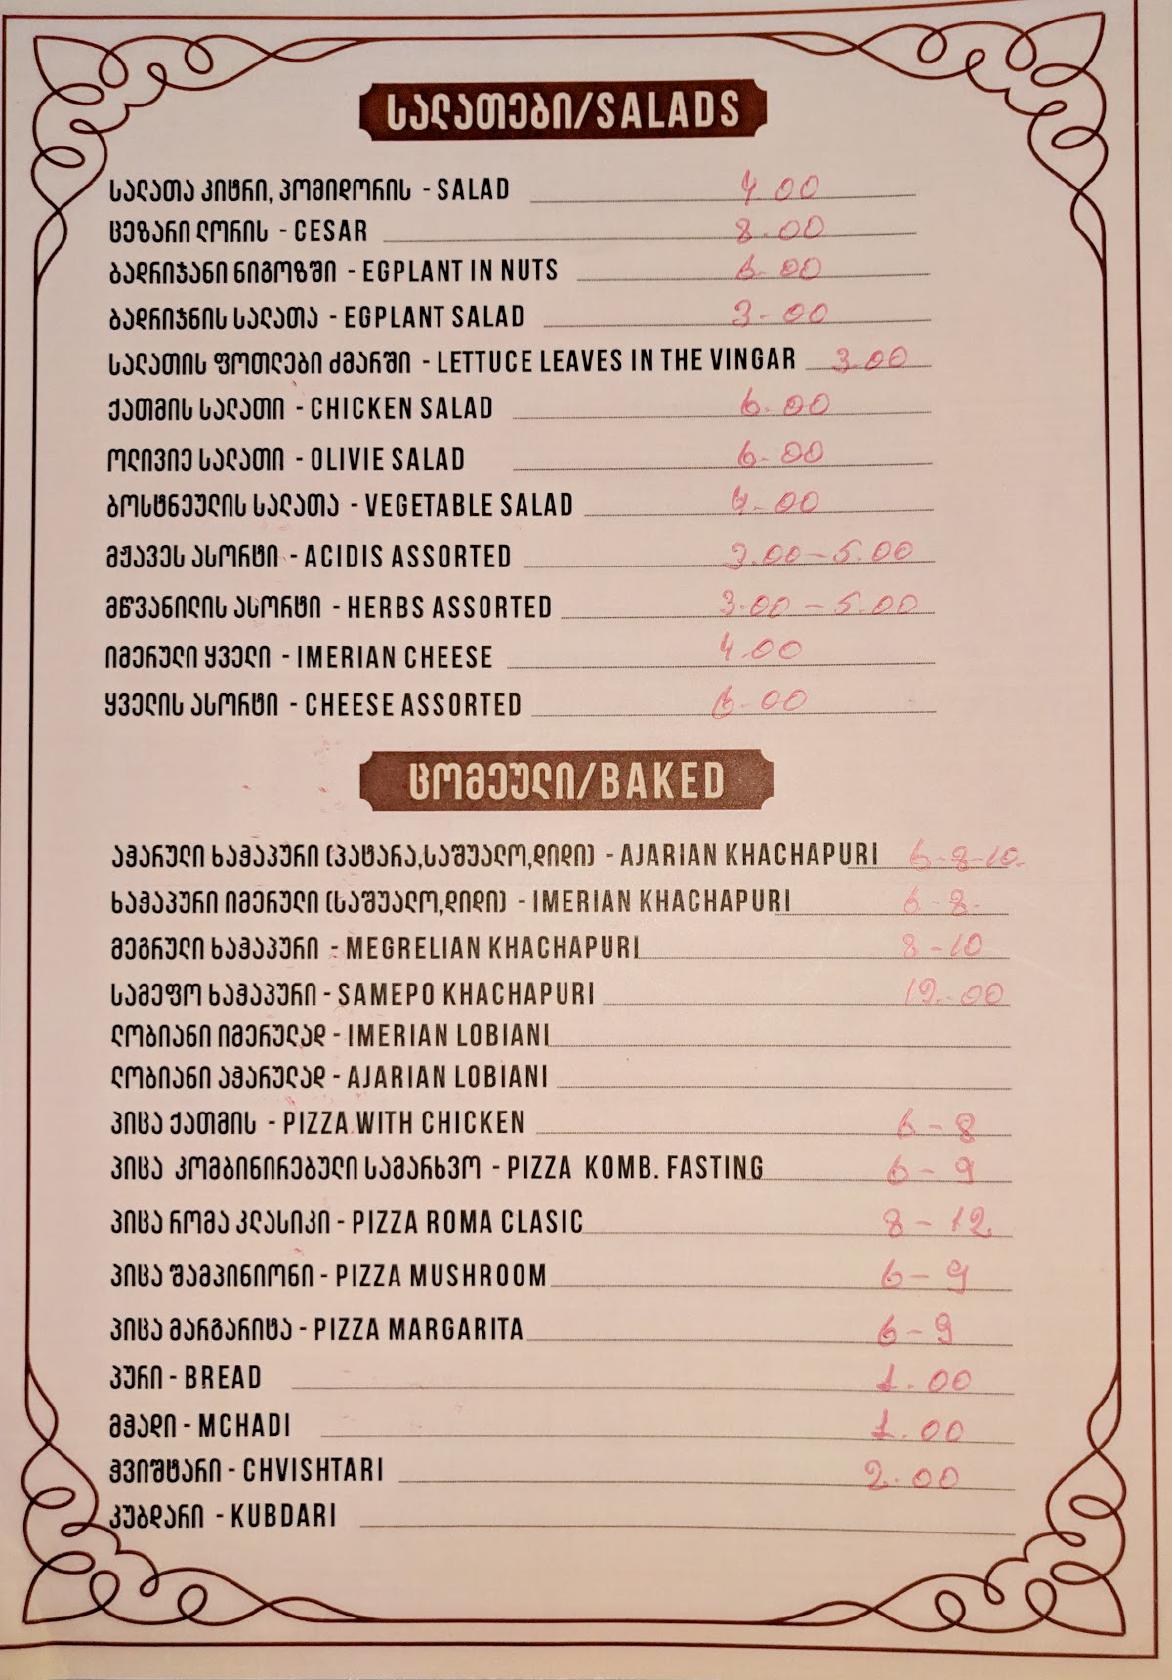 სალათები/SALADS
სალათა კიტრი, პომიდორის - SALAD 4.00
ცეზარი ლორის - CESAR 8.00
ბადრიჯანი ნიგოზში - EGPLANT IN NUTS 6.00
ბადრიჯნის სალათა - EGPLANT SALAD 3-00
სალათის ფოთლები ძმარში - LETTUCE LEAVES IN THE VINGAR 3.00
ქათმის სალათი - CHICKEN SALAD 6.00
ოლივიე სალათი - OLIVIE SALAD 6-00
ბოსტნეულის სალათა - VEGETABLE SALAD 4.00
მჟავეს ასორტი - ACIDIS ASSORTED 3.00-5.00
მწვანილის ასორტი - HERBS ASSORTED 3.00-5.00
იმერული ყველი - IMERIAN CHEESE 4.00
ყველის ასორტი - CHEESE ASSORTED 6-00
ცომეული/BAKED
აჭარული ხაჭაპური (პატარა,საშუალო,დიდი) - AJARIAN KHACHAPURI 6-8-10.
ხაჭაპური იმერული (საშუალო,დიდი) - IMERIAN KHACHAPURI 6-8-
მეგრული ხაჭაპური - MEGRELIAN KHACHAPURI 8-10
სამეფო ხაჭაპური - SAMEPO KHACHAPURI 12.00
ლობიანი იმერულად - IMERIAN LOBIANI
ლობიანი აჭარულად - AJARIAN LOBIANI
პიცა ქათმის - PIZZA WITH CHICKEN 6-8
პიცა კომბინირებული სამარხვო - PIZZA KOMB. FASTING 6-9
პიცა რომა კლასიკი - PIZZA ROMA CLASIC 8-12
პიცა შამპინიონი - PIZZA MUSHROOM 6-9
პიცა მარგარიტა - PIZZA MARGARITA 6-9
პური - BREAD 1.00
მჭადი - MCHADI 1.00
ჭვიშტარი - CHVISHTARI 2.00
კუბდარი - KUBDARI